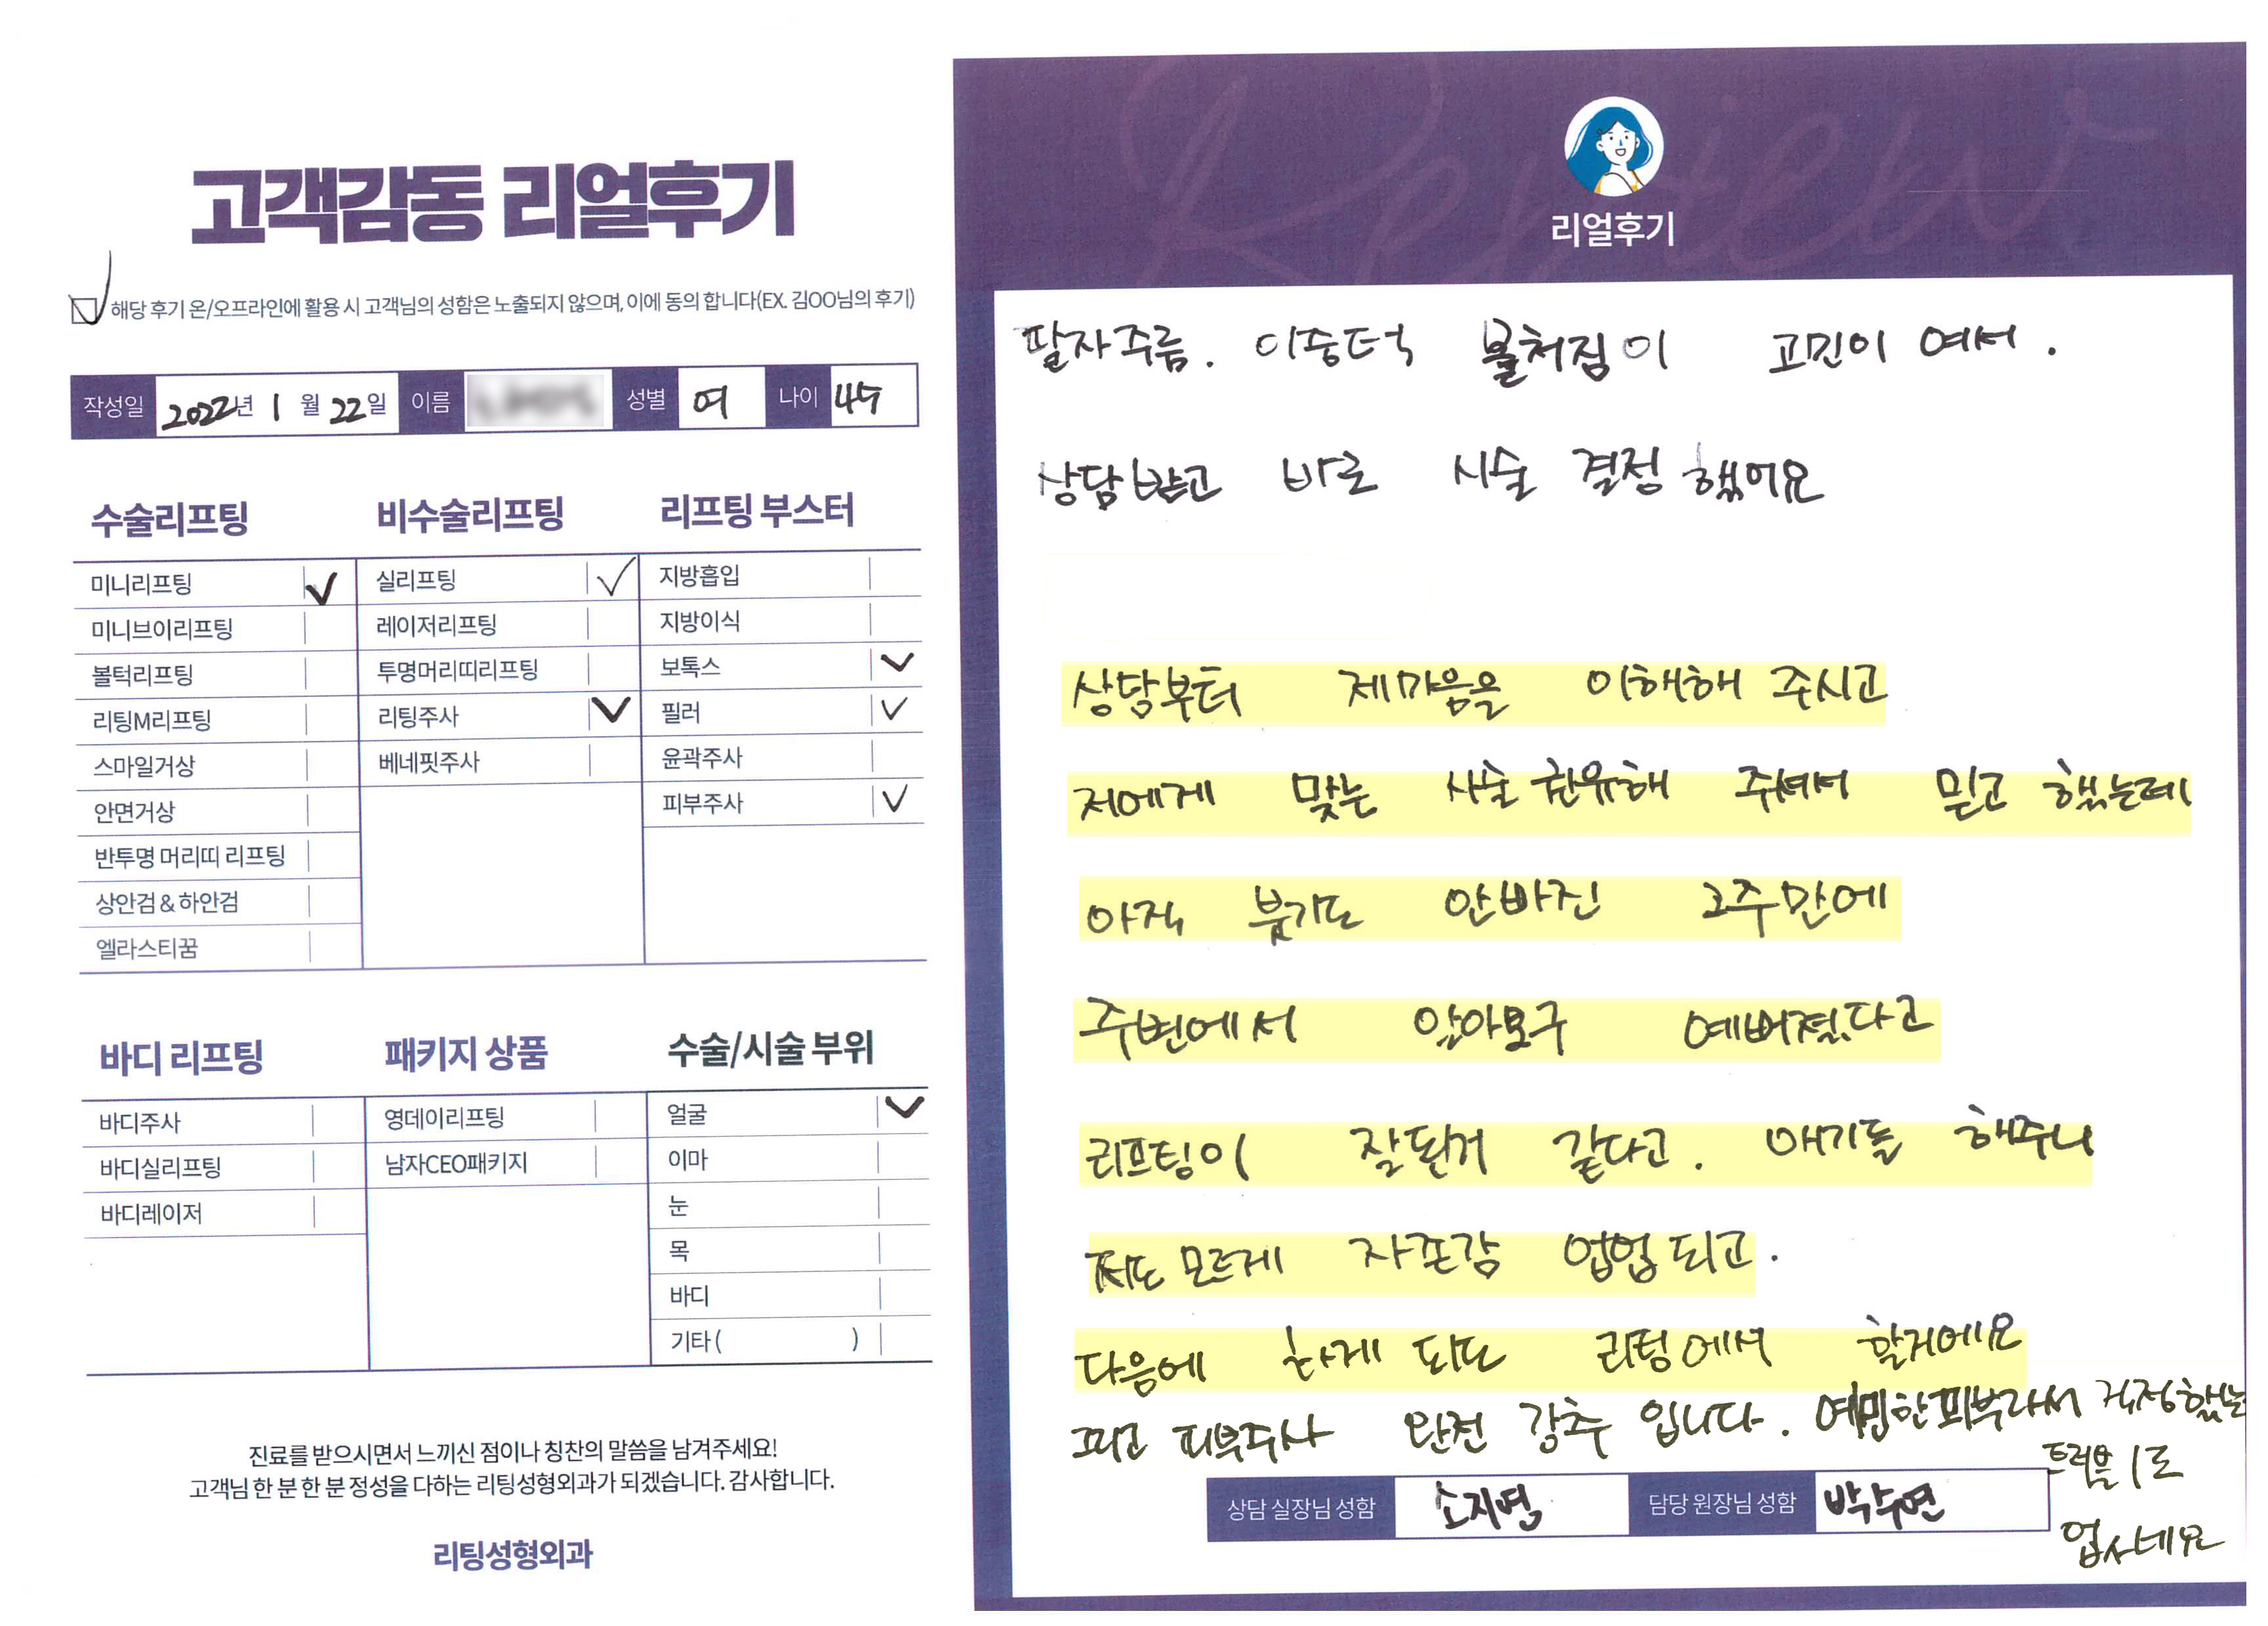 고객감동 리얼후기
해당 후기 온/오프라인에 활용 시 고객님의 성함은 노출되지 않으며, 이에 동의 합니다(EX. 김OO님의 후기)
작성일 2022년 1월 22일 이름 성별 여 나이
수술리프팅
미니리프팅
미니브이리프팅
볼턱리프팅
리팅M리프팅
스마일거상
안면거상
반투명 머리띠 리프팅
상안검 & 하안검
엘라스티꿈
비수술리프팅
실리프팅
레이저리프팅
투명머리띠리프팅
리팅주사
베네핏주사
리프팅 부스터
지방흡입
지방이식
보톡스
필러
윤곽주사
피부주사
바디 리프팅
바디주사
바디실리프팅
바디레이저
패키지 상품
영데이리프팅
남자CEO패키지
수술/시술 부위
얼굴
이마
눈
목
바디
기타 ( )
진료를 받으시면서 느끼신 점이나 칭찬의 말씀을 남겨주세요!
고객님 한 분 한 분 정성을 다하는 리팅성형외과가 되겠습니다. 감사합니다.
리팅성형외과
Review
리얼후기
팔자주름. 이중턱 볼처짐이 고민이 여서.
상담받고 바로 시술 결정 했어요
상담부터 제마음을 이해해 주시고
저에게 맞는 시술 권유해 주셔서 믿고 했는데
아직 붓기도 안빠진 2주만에
주변에서 알아보구 예뻐졌다고
리프팅이 잘된거 같다고. 얘기들 해주니
저도 모르게 자존감 업업되고.
다음에 하게 되도 리팅에서 할거에요
피부주사 완전 강추 입니다. 예민한피부라서 걱정했는
트러블 1도
업사네요
상담 실장님 성함 소지명
담당 원장님 성함 박수연